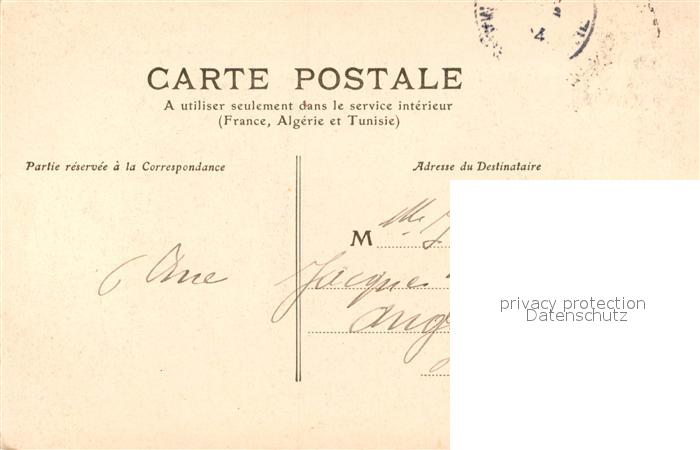 4
CARTE POSTALE
A utiliser seulement dans le service intérieur
(France, Algérie et Tunisie)
Partie réservée à la Correspondance
Adresse du Destinataire
M Mlle
6 Rue Jacques
Ang
privacy protection
Datenschutz